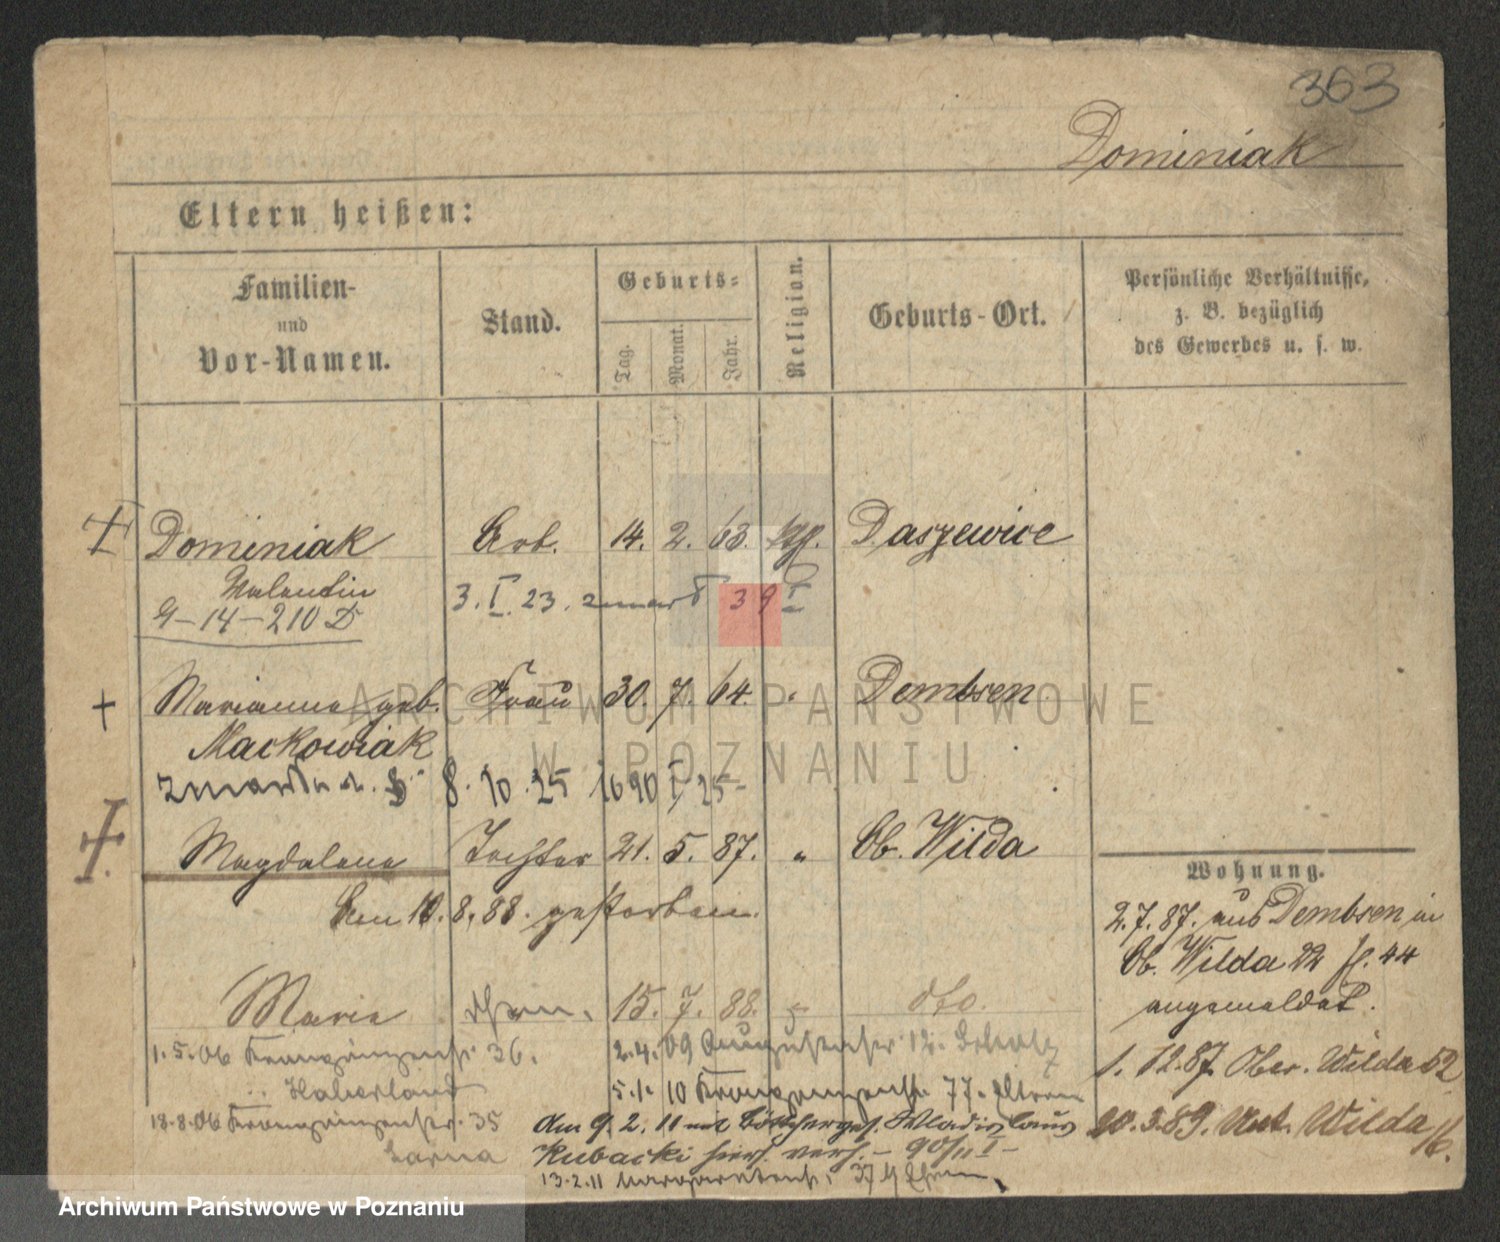 363
Dominiak
Eltern heißen:
Familien-
und
Vor-Namen.
Stand.
Geburts-
Tag.
Monat.
Jahr.
Religion.
Geburts-Ort.
Persönliche Verhältnisse,
z. B. bezüglich
des Gewerbes u. s. w.
Dominiak Arb. 14. 2. 63. kath. Daszewice
Valentin
3. I. 23. zmarł 39 I
9-14-210 D
Marianna geb. Frau 30. 7. 64. " Dembsen
Mackowiak
zmarła d. 8. 10. 25 1690 I 25
Magdalena Tochter 21. 5. 87. " Ob. Wilda
Am 10. 8. 88. gestorben.
Marie 15. 7. 88. " dto.
1. 5. 06 Kronprinzenstr. 36. 2. 4. 09 Augustastr. 12.
Haberland
5. 1. 10 Kronprinzenstr. 77. Eltern
18. 8. 06 Kronprinzenstr. 35
Am 9. 2. 11 mit Böttcherges. Wladislaus
Kubacki hier verh. - 90/11 I -
13. 2. 11 Margaretenstr. 37
Wohnung.
2. 7. 87. aus Dembsen in
Ob. Wilda 22 fl. 44
angemeldet.
1. 12. 87. Ober. Wilda 52
20. 3. 89. Unt. Wilda 16.
ARCHIWUM PAŃSTWOWE
W POZNANIU
Archiwum Państwowe w Poznaniu